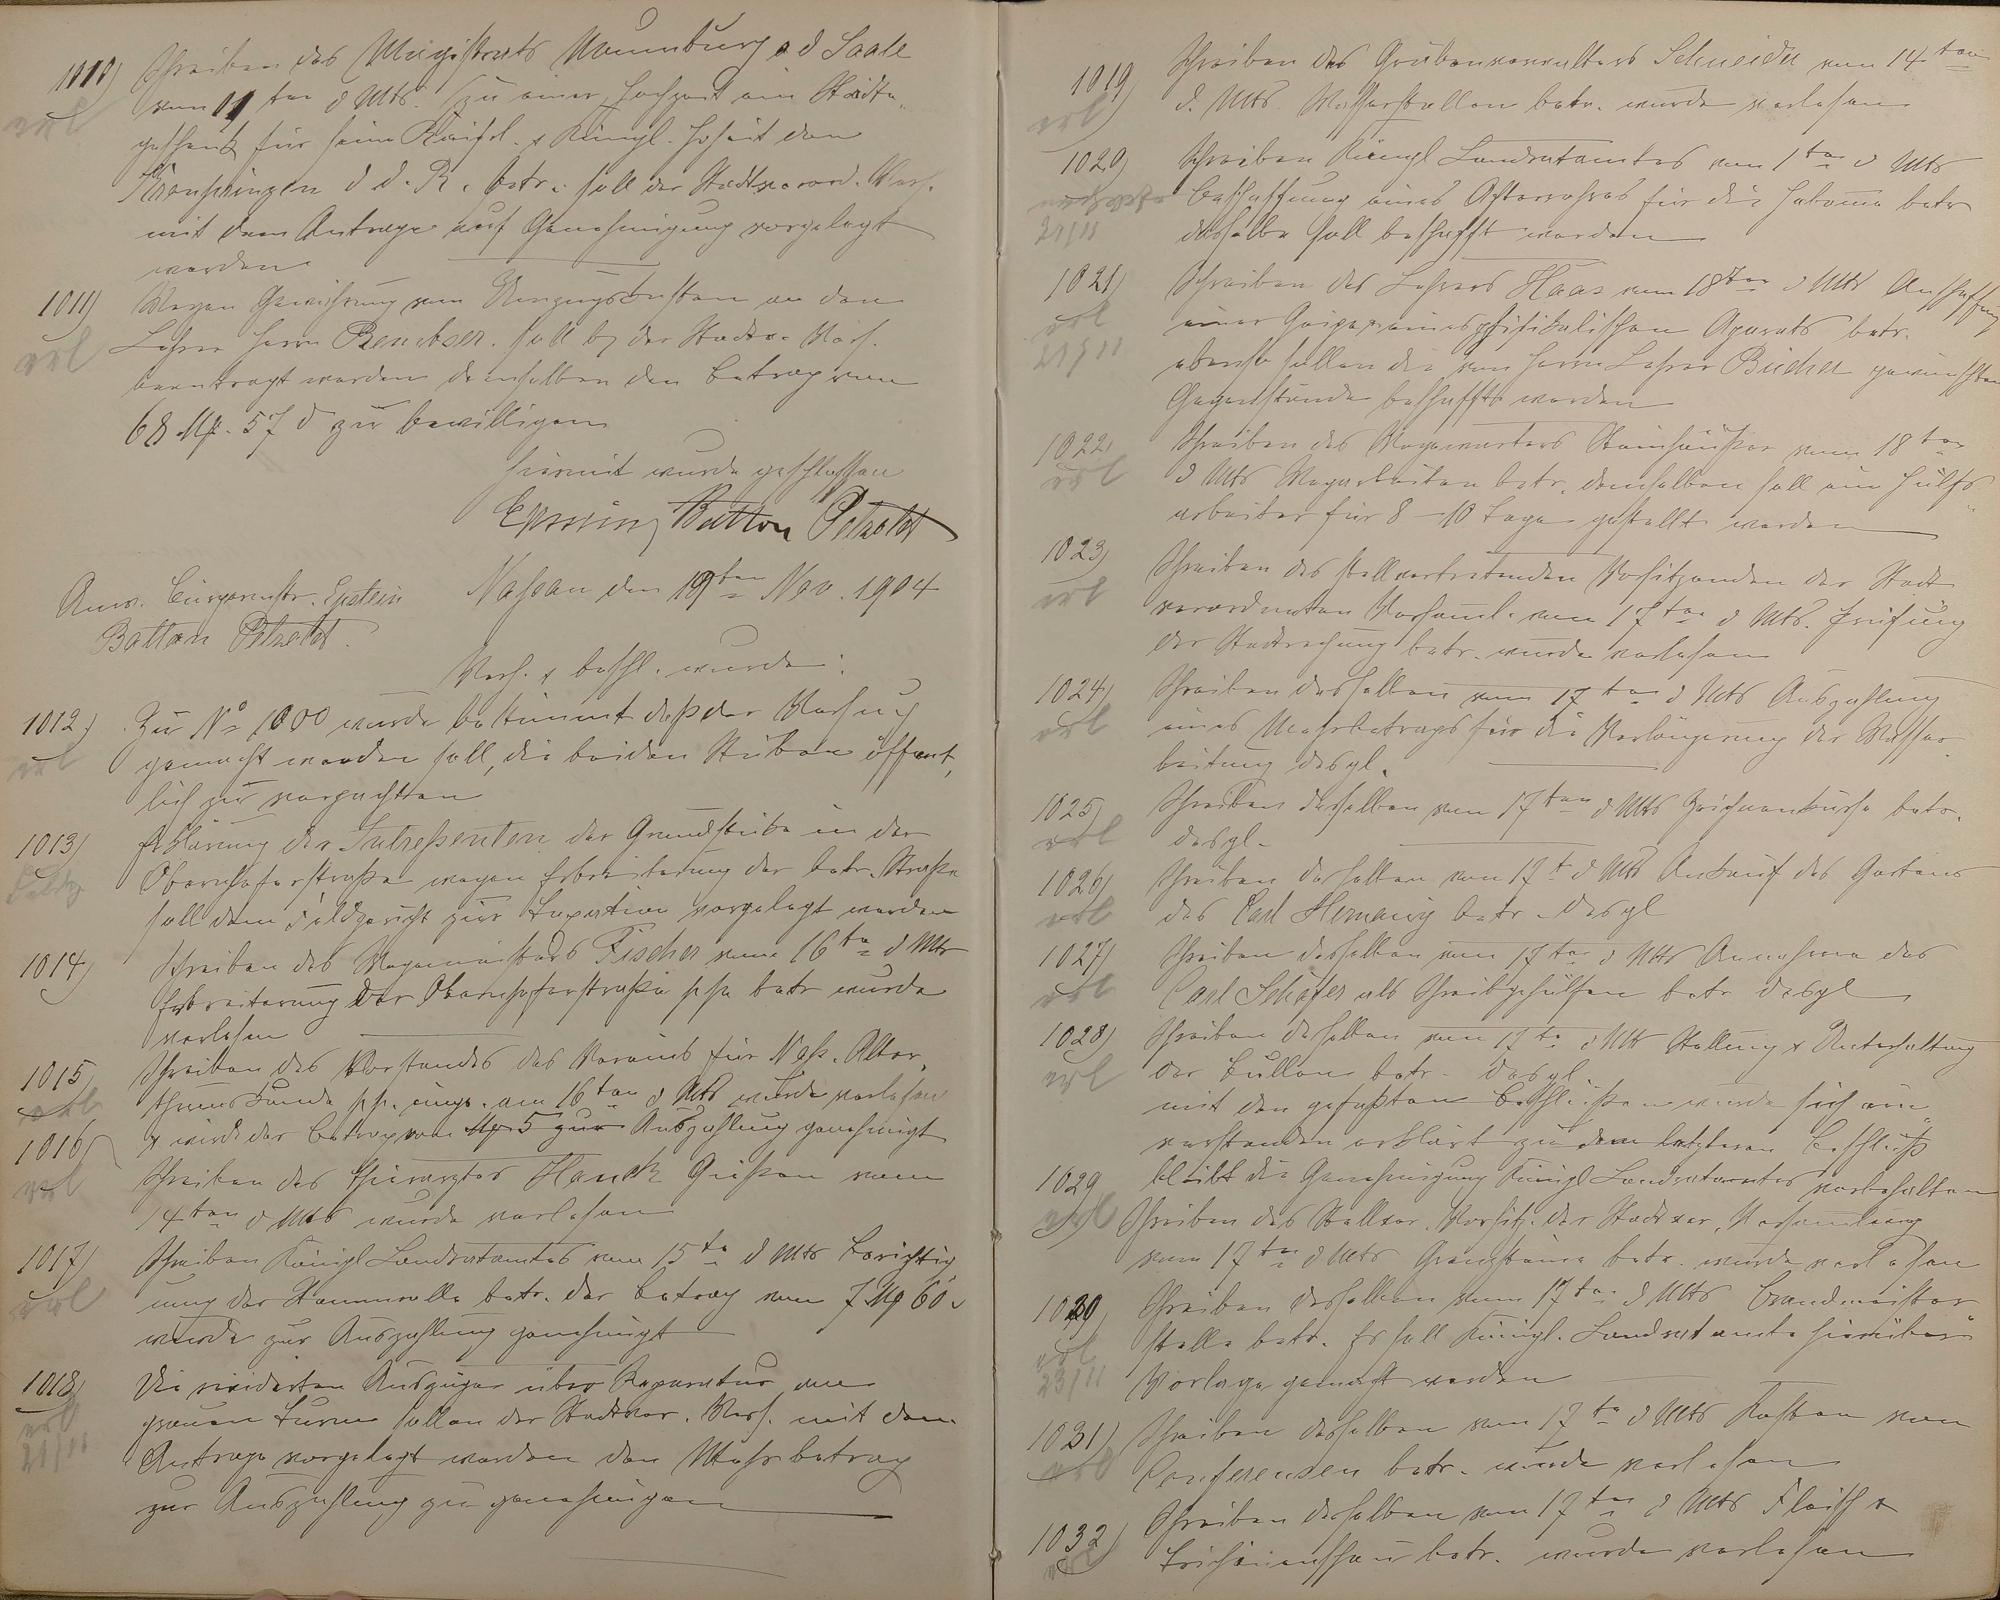 1010) Schreiben des Magistrats Naumburg a d Saale
erl vom 11ten d Mts. zu einer Hochzeit ein Städte„
geschenk für seine Kaiserl. & Königl. Hoheit den
Kronprinzen d. d. R. betr. soll der Stadtverord. Vers.
mit dem Antrage auf Genehmigung vorgelegt
werden
1011) Wegen Gewährung von Umzugskosten an den
erl Lehrer Herrn soll by der Stadtv. Vers.
beantragt werden demselben den Betrag von
68 M. 57 d zu bewilligen
Hiermit wurde geschlossen
Batton Petzoldt
Anw. Bürgermstr. Epstein
Batton Petzoldt.
Nassau den 19ten Nov. 1904
Verh. & beschl. wurde:
1012) Zu No 1000 wurde bestimmt daß der Versuch
erl gemacht werden soll, die beiden Stuben öffent„
lich zu verpachten
1013) Erklärung der Intreßenten der Grundstücke in der
Obernhoferstraße wegen Erbreiterung der betr. Straße
soll dem Feldgericht zur Taxation vorgelegt werden
1014) Schreiben des Wegemeisters Fischer vom 16ten d Mts
Erbreiterung der Obernhoferstraße pp betr wurde
verlesen
1015) Schreiben des Vorstandes des Vereins für Naß. Alter„
erl thumskunde pp. eingg. am 16ten d Mts wurde verlesen
& wird der Betrag von M 5 zur Auszahlung genehmigt
1016) Schreiben des Thierarztes Hauck Gießen vom
erl 14ten d Mts wurde verlesen
1017) Schreiben Königl Landratamtes vom 15ten d Mts Berichtig„
erl ung der Stammrolle betr. der Betrag von 7 M 60 d
wurde zur Auszahlung genehmigt
1018) Die revidirten Auszüge über Reparatur am
erl grauen Turm sollen der Stadtver. Vers. mit dem
21/11 Antrage vorgelegt werden den Mehrbetrag
zur Auszahlung zu genehmigen
1019) Schreiben des Grubenverwalters Schneider vom 14ten
erl d. Mts. Wasserstollen betr. wurde verlesen
1020) Schreiben Königl Landratamtes vom 1ten d Mts
Beschaffung eines Afterrohres für die Hebamme betr
21/11 dasselbe soll beschafft werden
1021) Schreiben des Lehrers Haas vom 18ten d Mts Anschaffung
erl einer Geige & eines phisikalischen Aparats betr.
21/11 ebenso sollen die von Herrn Lehrer Bücher gewünschten
Gegenstände beschafft werden
1022) Schreiben des Wegewärters Steinhäußer vom 18ten
erl d Mts Wegarbeiten betr. demselben soll ein Hülfs„
arbeiter für 8–10 Tage gestellt werden
1023) Schreiben des stellvertretenden Vorsitzenden der Stadt
erl verordneten Versaml. vom 17ten d Mts. Prüfung
der Stadtrechnung betr. wurde verlesen
1024) Schreiben desselben vom 17ten d Mts Auszahlung
erl eines Mehrbetrags für die Verlängerung der Wasser
leitung desgl.
1025) Schreiben desselben vom 17ten d Mts Zeichenkurse betr.
erl desgl.
1026) Schreiben desselben vom 17t d Mts Ankauf des Gartens
erl des Carl betr. desgl
1027) Schreiben desselben vom 17ten d Mts Annahme des
erl Carl Schäfer als Schreibgehülfen betr desgl
1028) Schreiben desselben vom 17ten d Mts Stellung & Unterhaltung
erl der Bullen betr. desgl.
mit den gefaßten Beschlüßen wurde sich ein„
verstanden erklärt zu dem letzteren Beschluß
bleibt die Genehmigung Königl Landratamtes vorbehalten
1029 Schreiben des Stellver. Vorsitz. der Stadtver. Versamlung
erl vom 17ten d Mts Grenzsteine betr. wurde verlesen
1030 Schreiben desselben vom 17ten d Mts Brandmeister„
erl stelle betr. Es soll Königl. Landratamte hierüber
23/11 Vorlage gemacht werden
1031) Schreiben desselben vom 17ten d Mts Kosten von
erl Conferenzen betr. wurde verlesen
1032) Schreiben desselben vom 17ten d Mts Fleisch &
erl Trichinenschau betr. wurde verlesen